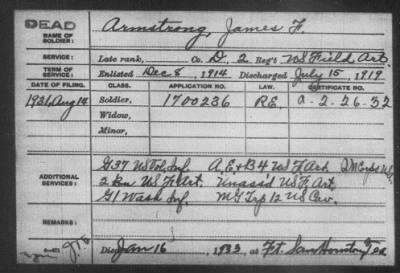 DEAD
NAME OF SOLDIER: Armstrong, James F.
SERVICE: Late rank, Co. D, 2 Reg't US Field Art
TERM OF SERVICE: Enlisted Dec 8, 1914 Discharged July 15, 1919
DATE OF FILING. CLASS. APPLICATION NO. LAW. CERTIFICATE NO.
1931 Aug 14 Soldier, 1700236 R.E. a-2-26-32
Widow,
Minor,
ADDITIONAL SERVICES: G 37 US Vol. Inf. A, E & B 4 US F Art QM Corps US
2 Bn US F. Art. Unass'd US F. Art.
G 1 Wash Inf. MG Trp 12 US Cav.
REMARKS:
Died Jan 16, 1933, at Ft. Sam Houston, Tex